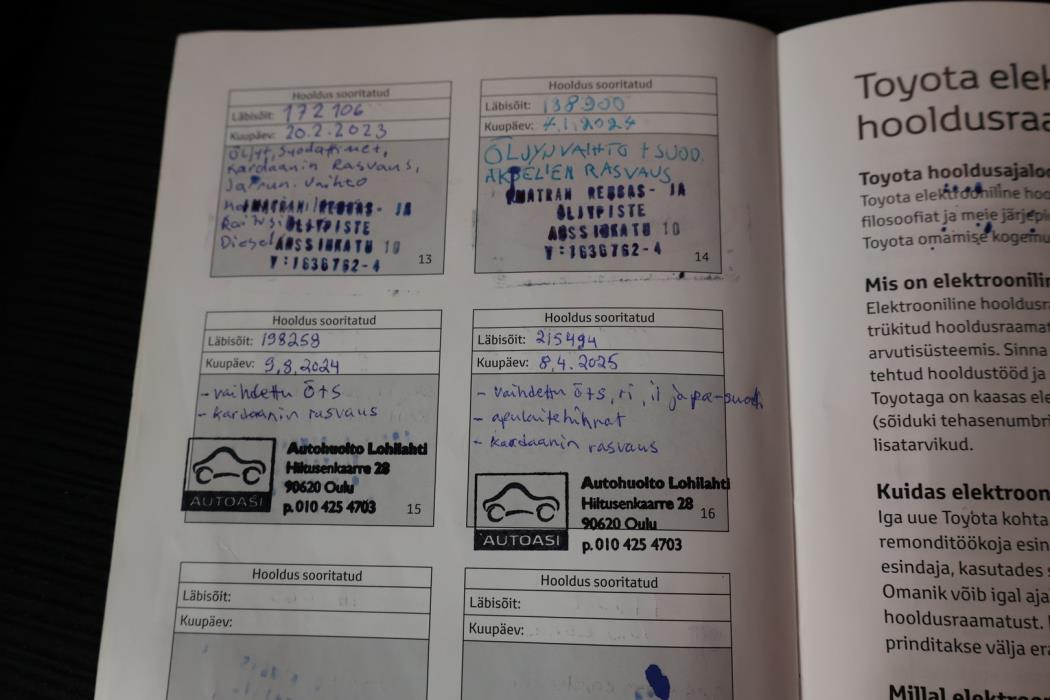 Hooldus sooritatud
Läbisõit: 172 106
Kuupäev: 20.2.2023
Öljyt, suodattimet,
Kardaanin Rasvaus,
Jarrun. Vaihto
IMATRAN RENGAS- JA
ÖLJYPISTE
ANSSINKATU 10
Y:1636762-4
Diesel
13
Hooldus sooritatud
Läbisõit: 138900
Kuupäev: 4.1.2024
ÖLJYNVAIHTO + SUOD.
AKSELIEN RASVAUS
IMATRAN RENGAS- JA
ÖLJYPISTE
ANSSINKATU 10
Y:1636762-4
14
Hooldus sooritatud
Läbisõit: 198258
Kuupäev: 9,8,2024
- vaihdettu ö+s
- kardaanin rasvaus
AUTOASI
Autohuolto Lohilahti
Hiltusenkaarre 28
90620 Oulu
p.010 425 4703
15
Hooldus sooritatud
Läbisõit: 215494
Kuupäev: 8,4.2025
- vaihdettu ö+s, ri, il ja pa-suod
- apulaitehihnat
- kardaanin rasvaus
AUTOASI
Autohuolto Lohilahti
Hiltusenkaarre 28
90620 Oulu
p.010 425 4703
16
Hooldus sooritatud
Läbisõit:
Kuupäev:
Hooldus sooritatud
Läbisõit:
Kuupäev:
Toyota elek
hooldusraa
Toyota hooldusajaloo
Toyota elektrooniline hoo
filosoofiat ja meie järjepi
Toyota omamise kogemu
Mis on elektroonilin
Elektrooniline hooldusra
trükitud hooldusraamat
arvutisüsteemis. Sinna
tehtud hooldustööd ja
Toyotaga on kaasas ele
(sõiduki tehasenumbri
lisatarvikud.
Kuidas elektroon
Iga uue Toyota kohta
remonditöökoja esin
esindaja, kasutades s
Omanik võib igal aja
hooldusraamatust.
prinditakse välja era
Millal elektro